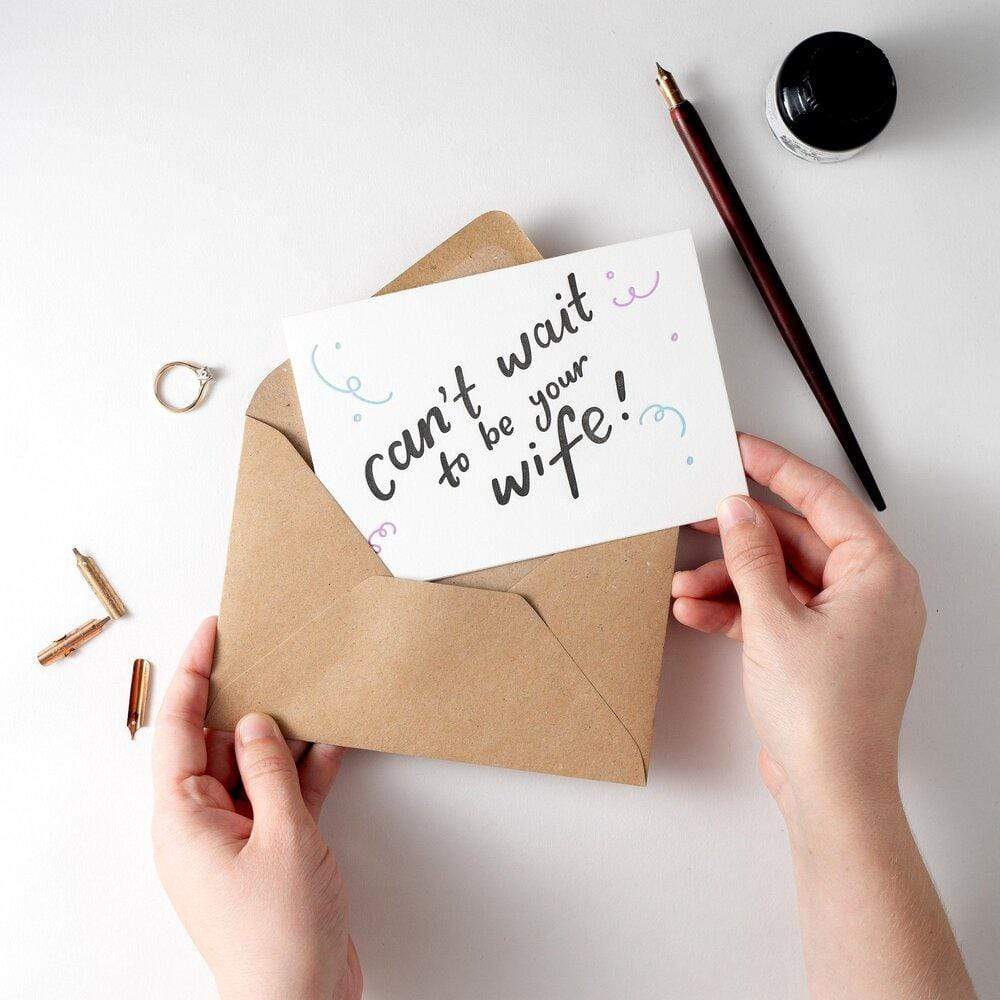 can't wait
to be your
wife!